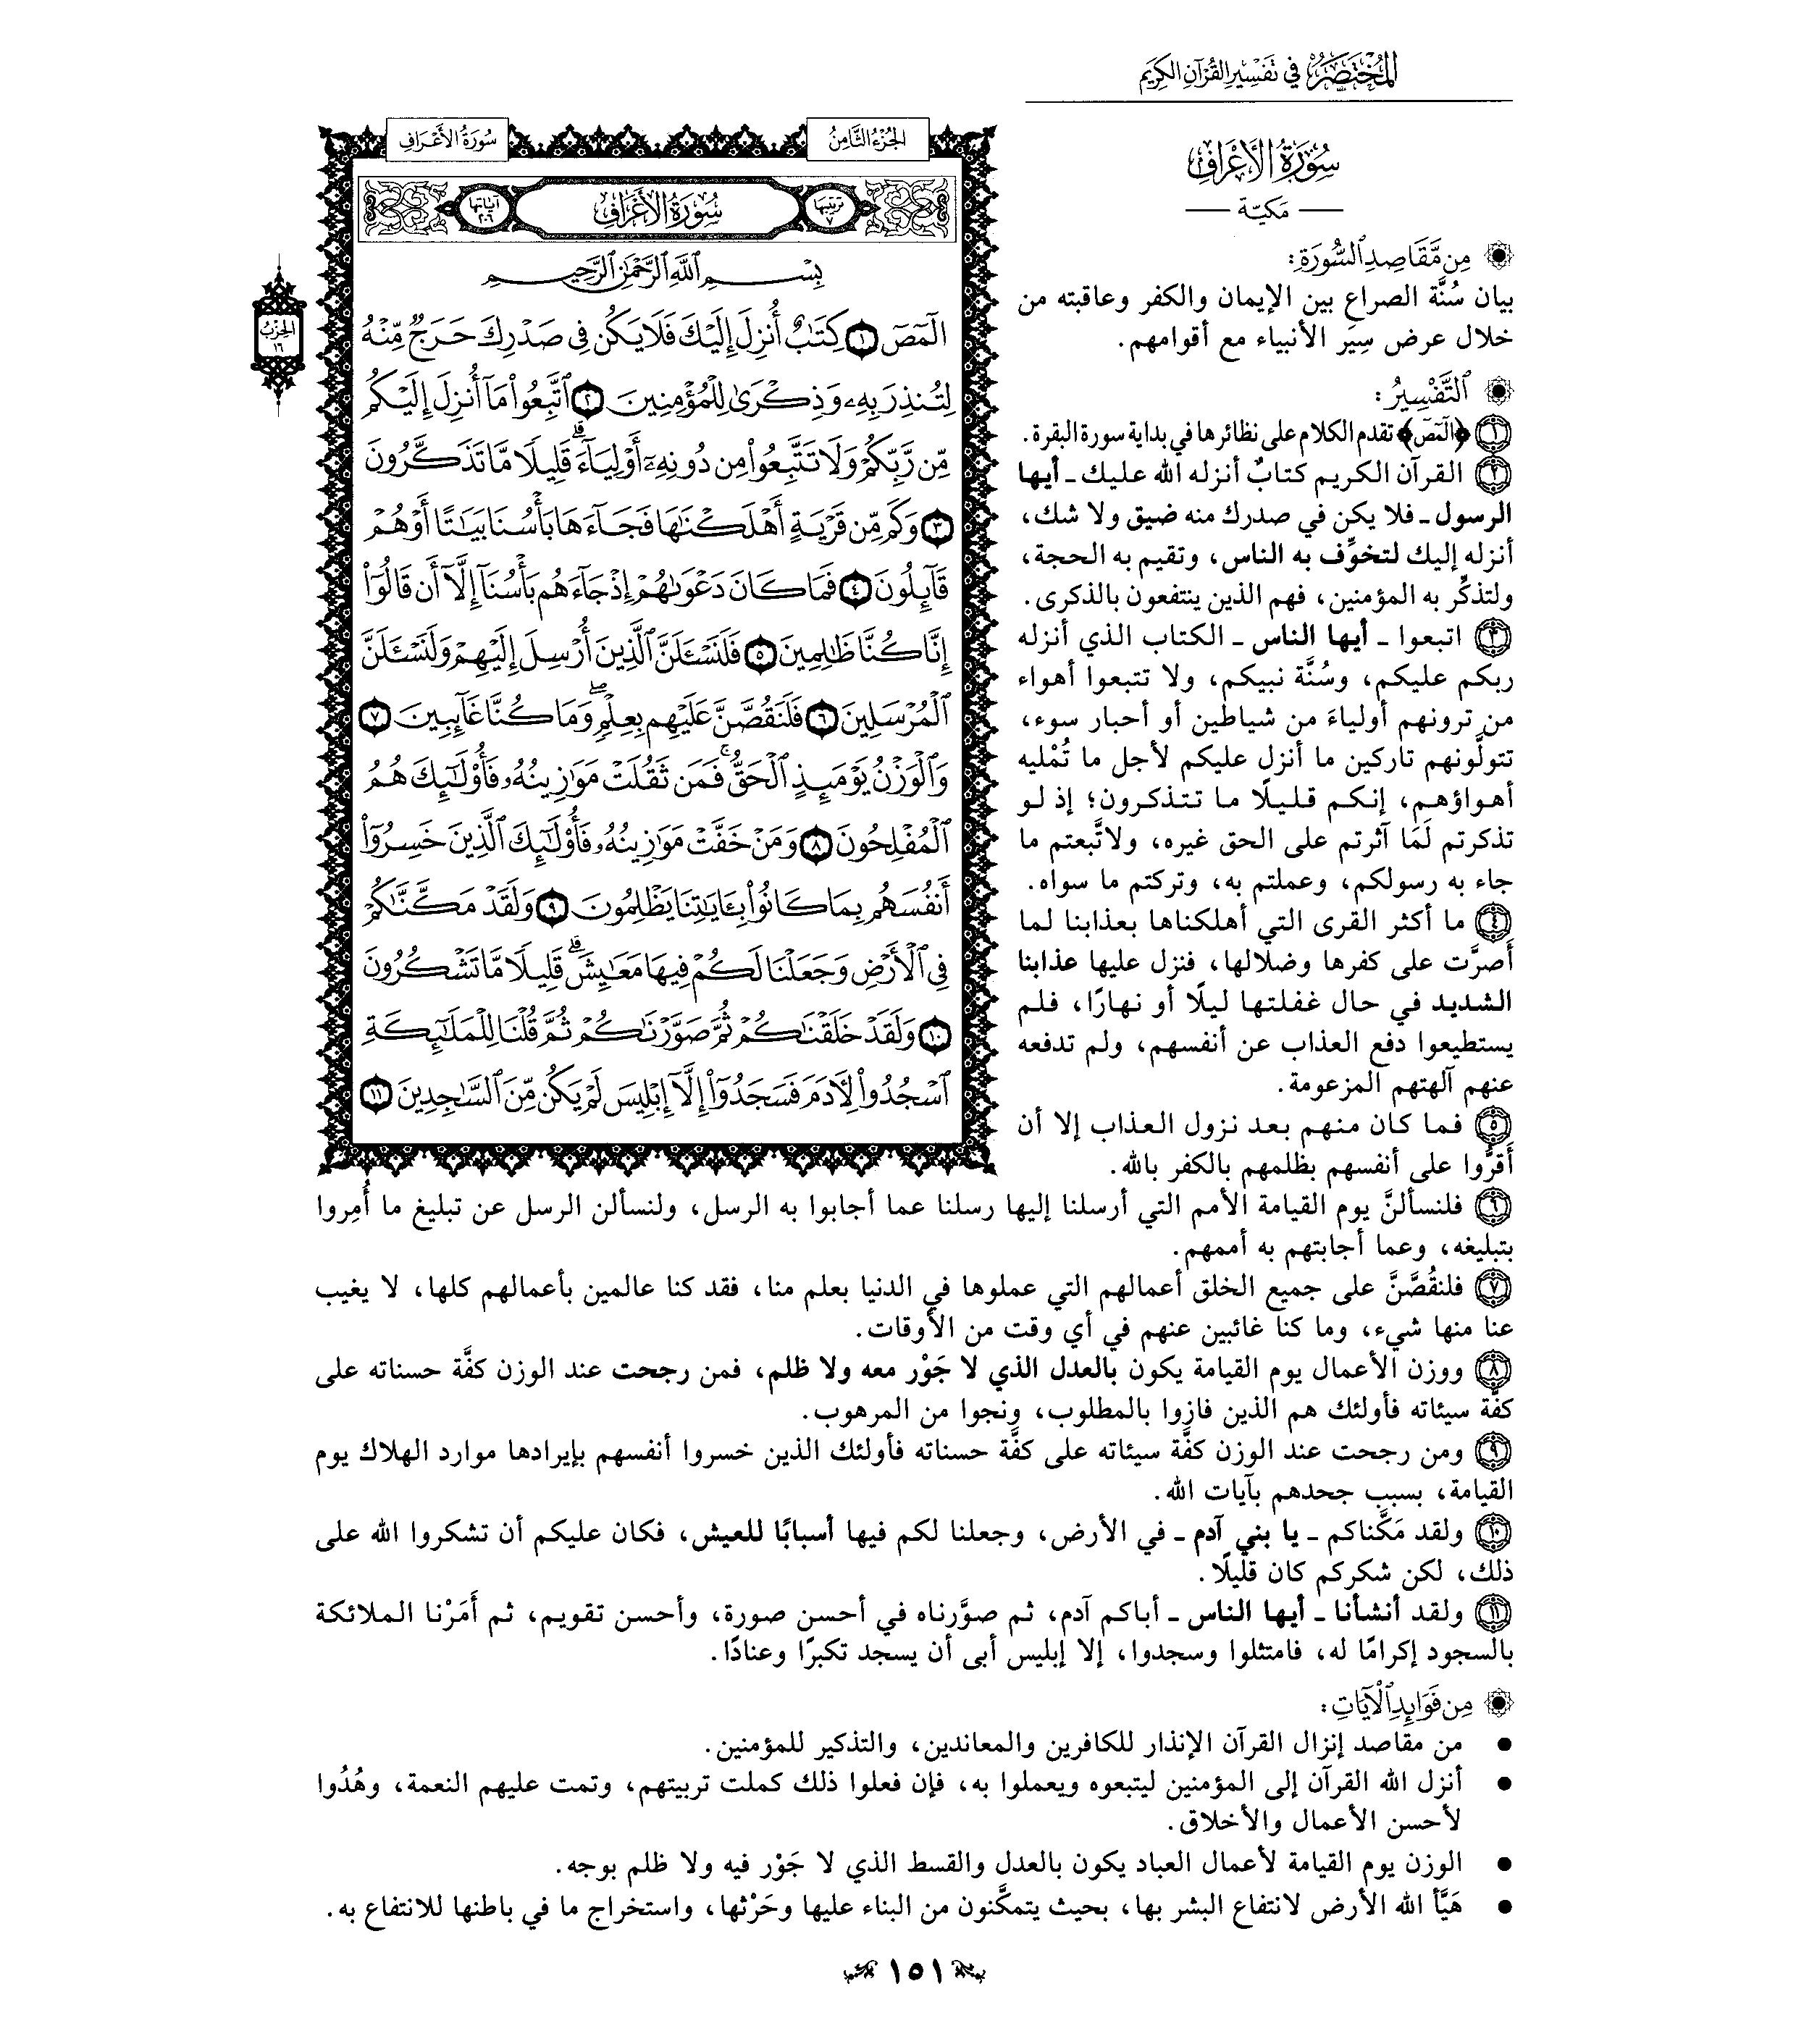 المُخْتَصَرُ فِي تَفْسِيرِ القُرْآنِ الكَرِيمِ
سُورَةُ الأَعْرَافِ
مَكيّة
مِن مَّقَاصِدِ السُّورَةِ:
بيان سُنَّة الصراع بين الإيمان والكفر وعاقبته من
خلال عرض سِيَر الأنبياء مع أقوامهم.
التَّفْسِيرُ:
١ ﴿الٓمٓصٓ﴾ تقدم الكلام على نظائرها في بداية سورة البقرة.
٢ القرآن الكريم كتابٌ أنزله الله عليك ـ أيها
الرسول ـ فلا يكن في صدرك منه ضيق ولا شك،
أنزله إليك لتخوِّف به الناس، وتقيم به الحجة،
ولتذكِّر به المؤمنين، فهم الذين ينتفعون بالذكرى.
٣ اتبعوا ـ أيها الناس ـ الكتاب الذي أنزله
ربكم عليكم، وسُنَّة نبيكم، ولا تتبعوا أهواء
من ترونهم أولياءَ من شياطين أو أحبار سوء،
تتولَّونهم تاركين ما أنزل عليكم لأجل ما تُمْليه
أهواؤهم، إنكم قليلًا ما تتذكرون؛ إذ لو
تذكرتم لَمَا آثرتم على الحق غيره، ولاتَّبعتم ما
جاء به رسولكم، وعملتم به، وتركتم ما سواه.
٤ ما أكثر القرى التي أهلكناها بعذابنا لما
أَصرَّت على كفرها وضلالها، فنزل عليها عذابنا
الشديد في حال غفلتها ليلًا أو نهارًا، فلم
يستطيعوا دفع العذاب عن أنفسهم، ولم تدفعه
عنهم آلهتهم المزعومة.
٥ فما كان منهم بعد نزول العذاب إلا أن
أَقرُّوا على أنفسهم بظلمهم بالكفر بالله.
الجُزْءُ الثَّامِنُ
سُورَةُ الأَعْرَافِ
ترتيبها ٧
سُورَةُ الأَعْرَافِ
آياتها ٢٠٦
بِسْمِ ٱللَّهِ ٱلرَّحْمَٰنِ ٱلرَّحِيمِ
الٓمٓصٓ ١ كِتَٰبٌ أُنزِلَ إِلَيْكَ فَلَا يَكُن فِي صَدْرِكَ حَرَجٌ مِّنْهُ
لِتُنذِرَ بِهِۦ وَذِكْرَىٰ لِلْمُؤْمِنِينَ ٢ ٱتَّبِعُوا۟ مَآ أُنزِلَ إِلَيْكُم
مِّن رَّبِّكُمْ وَلَا تَتَّبِعُوا۟ مِن دُونِهِۦٓ أَوْلِيَآءَۗ قَلِيلًا مَّا تَذَكَّرُونَ
٣ وَكَم مِّن قَرْيَةٍ أَهْلَكْنَٰهَا فَجَآءَهَا بَأْسُنَا بَيَٰتًا أَوْ هُمْ
قَآئِلُونَ ٤ فَمَا كَانَ دَعْوَىٰهُمْ إِذْ جَآءَهُم بَأْسُنَآ إِلَّآ أَن قَالُوٓا۟
إِنَّا كُنَّا ظَٰلِمِينَ ٥ فَلَنَسْـَٔلَنَّ ٱلَّذِينَ أُرْسِلَ إِلَيْهِمْ وَلَنَسْـَٔلَنَّ
ٱلْمُرْسَلِينَ ٦ فَلَنَقُصَّنَّ عَلَيْهِم بِعِلْمٍۖ وَمَا كُنَّا غَآئِبِينَ ٧
وَٱلْوَزْنُ يَوْمَئِذٍ ٱلْحَقُّۚ فَمَن ثَقُلَتْ مَوَٰزِينُهُۥ فَأُو۟لَٰٓئِكَ هُمُ
ٱلْمُفْلِحُونَ ٨ وَمَنْ خَفَّتْ مَوَٰزِينُهُۥ فَأُو۟لَٰٓئِكَ ٱلَّذِينَ خَسِرُوٓا۟
أَنفُسَهُم بِمَا كَانُوا۟ بِـَٔايَٰتِنَا يَظْلِمُونَ ٩ وَلَقَدْ مَكَّنَّٰكُمْ
فِي ٱلْأَرْضِ وَجَعَلْنَا لَكُمْ فِيهَا مَعَٰيِشَۗ قَلِيلًا مَّا تَشْكُرُونَ
١٠ وَلَقَدْ خَلَقْنَٰكُمْ ثُمَّ صَوَّرْنَٰكُمْ ثُمَّ قُلْنَا لِلْمَلَٰٓئِكَةِ
ٱسْجُدُوا۟ لِـَٔادَمَ فَسَجَدُوٓا۟ إِلَّآ إِبْلِيسَ لَمْ يَكُن مِّنَ ٱلسَّٰجِدِينَ ١١
الحِزْبُ
١٦
٦ فلنسألنَّ يوم القيامة الأمم التي أرسلنا إليها رسلنا عما أجابوا به الرسل، ولنسألن الرسل عن تبليغ ما أُمِروا
بتبليغه، وعما أجابتهم به أممهم.
٧ فلنقُصَّنَّ على جميع الخلق أعمالهم التي عملوها في الدنيا بعلم منا، فقد كنا عالمين بأعمالهم كلها، لا يغيب
عنا منها شيء، وما كنا غائبين عنهم في أي وقت من الأوقات.
٨ ووزن الأعمال يوم القيامة يكون بالعدل الذي لا جَوْر معه ولا ظلم، فمن رجحت عند الوزن كفَّة حسناته على
كفَّة سيئاته فأولئك هم الذين فازوا بالمطلوب، ونجوا من المرهوب.
٩ ومن رجحت عند الوزن كفَّة سيئاته على كفَّة حسناته فأولئك الذين خسروا أنفسهم بإيرادها موارد الهلاك يوم
القيامة، بسبب جحدهم بآيات الله.
١٠ ولقد مَكَّناكم ـ يا بني آدم ـ في الأرض، وجعلنا لكم فيها أسبابًا للعيش، فكان عليكم أن تشكروا الله على
ذلك، لكن شكركم كان قليلًا.
١١ ولقد أنشأنا ـ أيها الناس ـ أباكم آدم، ثم صوَّرناه في أحسن صورة، وأحسن تقويم، ثم أَمَرْنا الملائكة
بالسجود إكرامًا له، فامتثلوا وسجدوا، إلا إبليس أبى أن يسجد تكبرًا وعنادًا.
مِن فَوَائِدِ الآيَاتِ:
• من مقاصد إنزال القرآن الإنذار للكافرين والمعاندين، والتذكير للمؤمنين.
• أنزل الله القرآن إلى المؤمنين ليتبعوه ويعملوا به، فإن فعلوا ذلك كملت تربيتهم، وتمت عليهم النعمة، وهُدُوا
لأحسن الأعمال والأخلاق.
• الوزن يوم القيامة لأعمال العباد يكون بالعدل والقسط الذي لا جَوْر فيه ولا ظلم بوجه.
• هَيَّأ الله الأرض لانتفاع البشر بها، بحيث يتمكَّنون من البناء عليها وحَرْثها، واستخراج ما في باطنها للانتفاع به.
١٥١